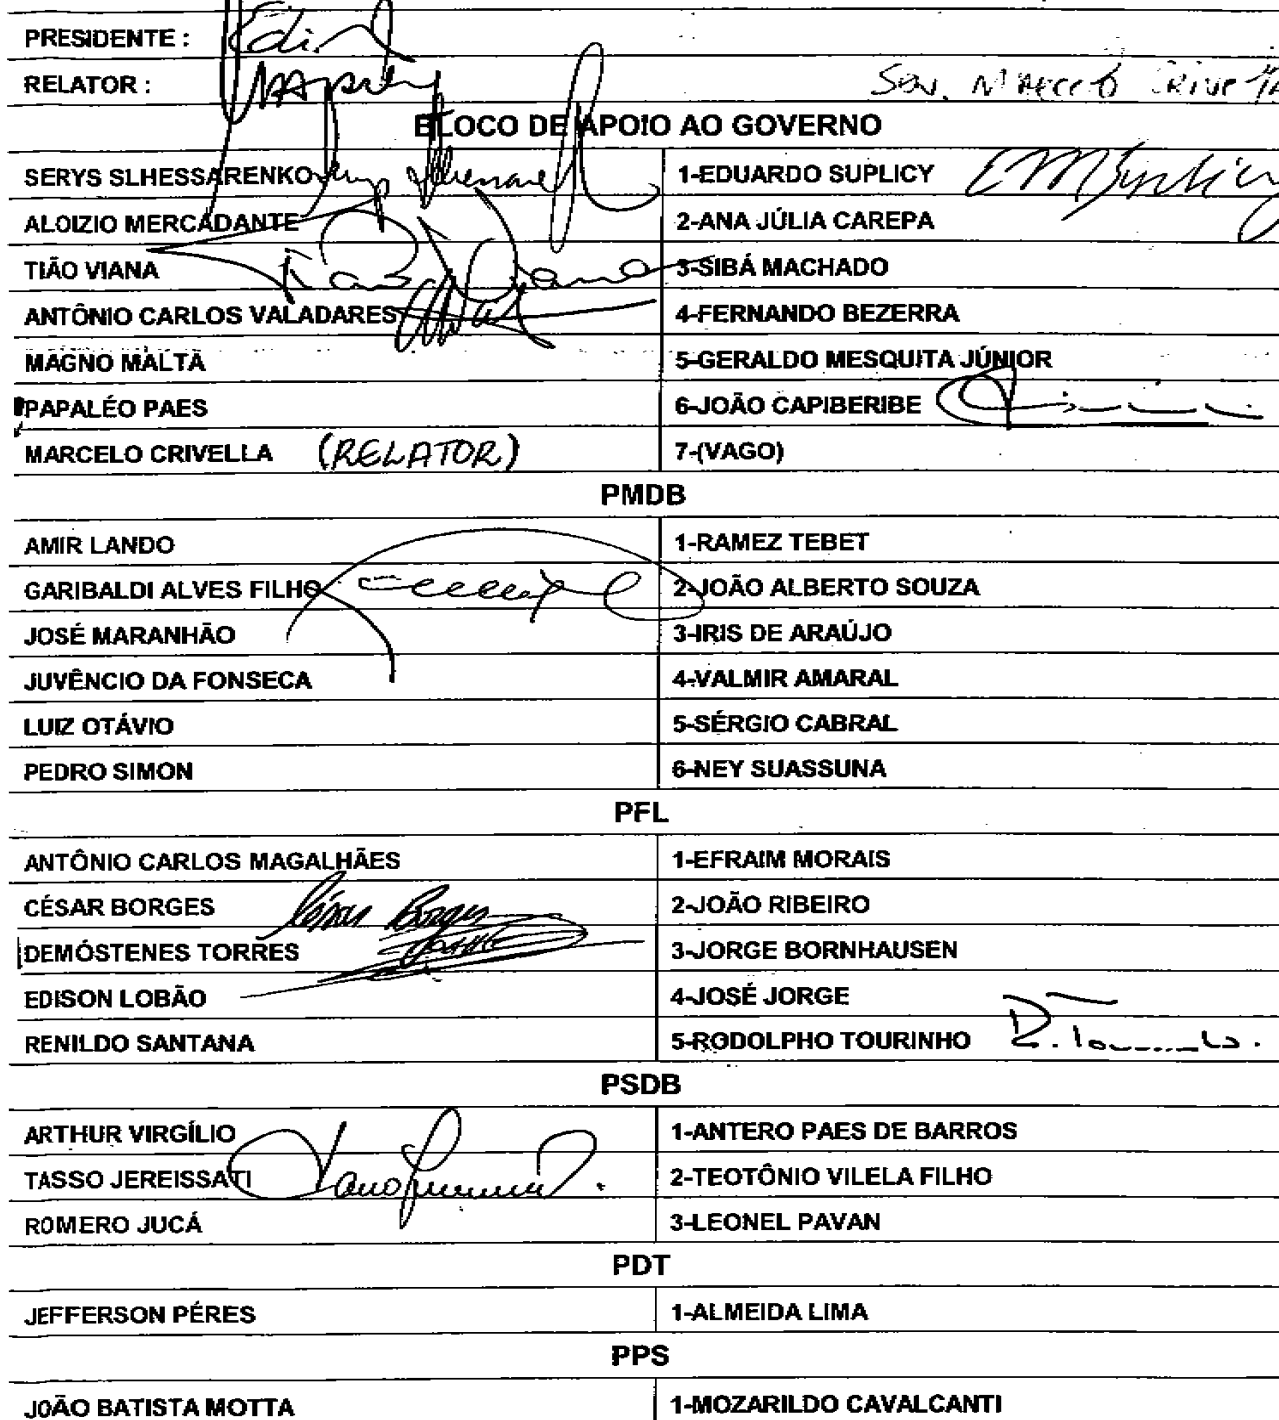 PRESIDENTE :
RELATOR : Sen.
BLOCO DE APOIO AO GOVERNO
SERYS SLHESSARENKO 1-EDUARDO SUPLICY
ALOIZIO MERCADANTE 2-ANA JÚLIA CAREPA
TIÃO VIANA 3-SIBÁ MACHADO
ANTÔNIO CARLOS VALADARES 4-FERNANDO BEZERRA
MAGNO MALTA 5-GERALDO MESQUITA JÚNIOR
PAPALÉO PAES 6-JOÃO CAPIBERIBE
MARCELO CRIVELLA (RELATOR) 7-(VAGO)
PMDB
AMIR LANDO 1-RAMEZ TEBET
GARIBALDI ALVES FILHO 2-JOÃO ALBERTO SOUZA
JOSÉ MARANHÃO 3-IRIS DE ARAÚJO
JUVÊNCIO DA FONSECA 4-VALMIR AMARAL
LUIZ OTÁVIO 5-SÉRGIO CABRAL
PEDRO SIMON 6-NEY SUASSUNA
PFL
ANTÔNIO CARLOS MAGALHÃES 1-EFRAIM MORAIS
CÉSAR BORGES César Borges 2-JOÃO RIBEIRO
DEMÓSTENES TORRES 3-JORGE BORNHAUSEN
EDISON LOBÃO 4-JOSÉ JORGE
RENILDO SANTANA 5-RODOLPHO TOURINHO
PSDB
ARTHUR VIRGÍLIO 1-ANTERO PAES DE BARROS
TASSO JEREISSATI 2-TEOTÔNIO VILELA FILHO
ROMERO JUCÁ 3-LEONEL PAVAN
PDT
JEFFERSON PÉRES 1-ALMEIDA LIMA
PPS
JOÃO BATISTA MOTTA 1-MOZARILDO CAVALCANTI